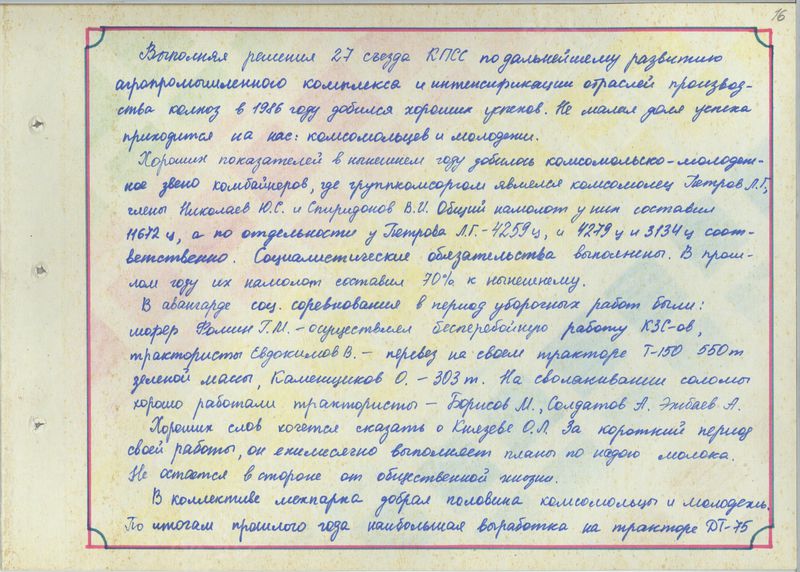 16
Выполняя решения 27 съезда КПСС по дальнейшему развитию
агропромышленного комплекса и интенсификации отраслей производ-
ства колхоз в 1986 году добился хороших успехов. Не малая доля успеха
приходится на нас: комсомольцев и молодежи.
Хороших показателей в нынешнем году добилось комсомольско-молодеж-
ное звено комбайнеров, где группкомсоргом являлся комсомолец Петров Л.Г,
члены Николаев Ю.С. и Спиридонов В.И. Общий намолот у них составил
11672 ц, а по отдельности у Петрова Л.Г. - 4259 ц, и 4279 ц и 3134 ц соот-
ветственно. Социалистические обязательства выполнены. В прош-
лом году их намолот составил 70% к нынешнему.
В авангарде соц. соревнования в период уборочных работ были:
шофер Фомин Г.М. - осуществлял бесперебойную работу КЗС-ов,
трактористы Евдокимов В. - перевез на своем тракторе Т-150 550 т
зеленой массы, Каменщиков О. - 303 т. На сволакивании соломы
хорошо работали трактористы - Борисов М., Солдатов А. Энбаев А.
Хороших слов хочется сказать о Князеве О.Л. За короткий период
своей работы, он ежемесячно выполняет планы по надою молока.
Не остается в стороне от общественной жизни.
В коллективе мехпарка добрая половина комсомольцы и молодежь.
По итогам прошлого года наибольшая выработка на тракторе ДТ-75